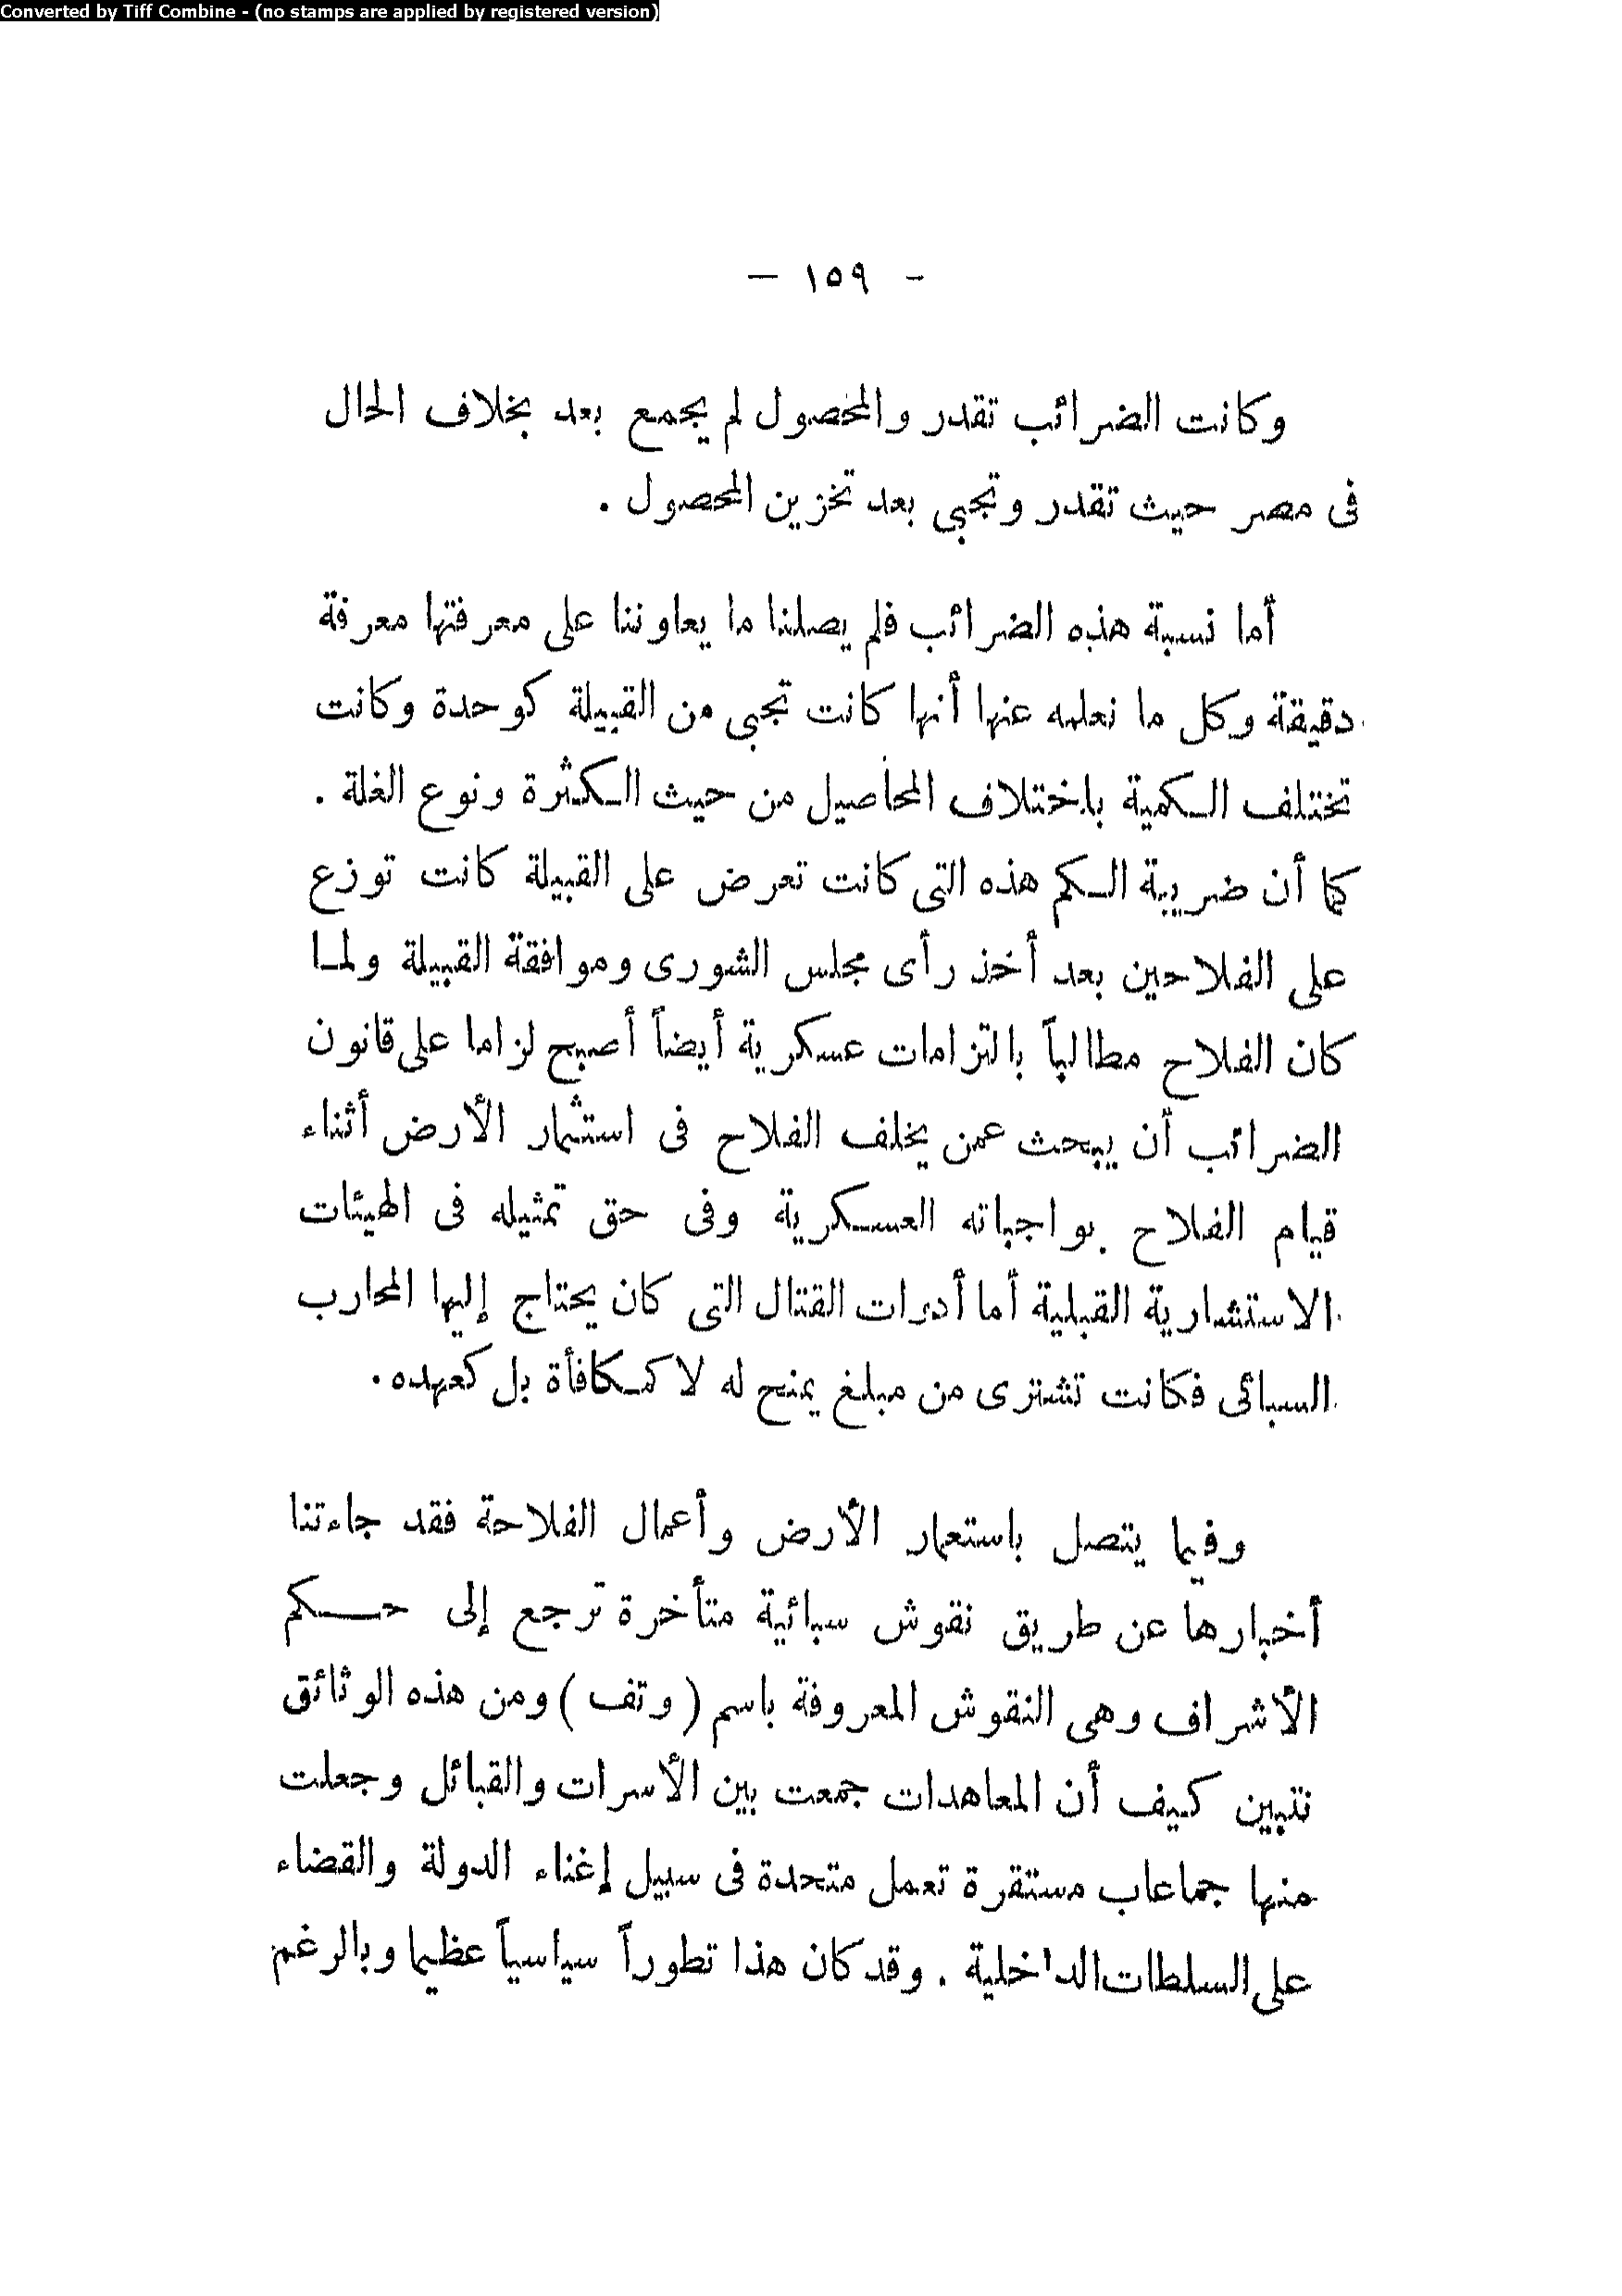 Converted by Tiff Combine - (no stamps are applied by registered version)
- ١٥٩ -
وكانت الضرائب تقدر والمحصول لم يجمع بعد بخلاف الحال
فى مصر حيث تقدر وتجبى بعد تخزين المحصول .
أما نسبة هذه الضرائب فلم يصلنا ما يعاوننا على معرفتها معرفة
دقيقة وكل ما نعلمه عنها أنها كانت تجبى من القبيلة كوحدة وكانت
تختلف الكمية باختلاف المحاصيل من حيث الكثرة ونوع الغلة .
كما أن ضريبة الكم هذه التى كانت تعرض على القبيلة كانت توزع
على الفلاحين بعد أخذ رأى مجلس الشورى وموافقة القبيلة ولما
كان الفلاح مطالباً بالتزامات عسكرية أيضاً أصبح لزاما على قانون
الضرائب أن يبحث عمن يخلف الفلاح فى استثمار الأرض أثناء
قيام الفلاح بواجباته العسكرية وفى حق تمثيله فى الهيئات
الاستشارية القبلية أما أدوات القتال التى كان يحتاج إليها المحارب
السبائى فكانت تشترى من مبلغ يمنح له لا كمكافأة بل كعهده .
وفيما يتصل باستعمار الأرض وأعمال الفلاحة فقد جاءتنا
أخبارها عن طريق نقوش سبائية متأخرة ترجع إلى حكم
الأشراف وهى النقوش المعروفة باسم ( وتف ) ومن هذه الوثائق
نتبين كيف أن المعاهدات جمعت بين الأسرات والقبائل وجعلت
منها جماعاب مستقرة تعمل متحدة فى سبيل إغناء الدولة والقضاء
على السلطات الداخلية . وقد كان هذا تطوراً سياسياً عظيما وبالرغم